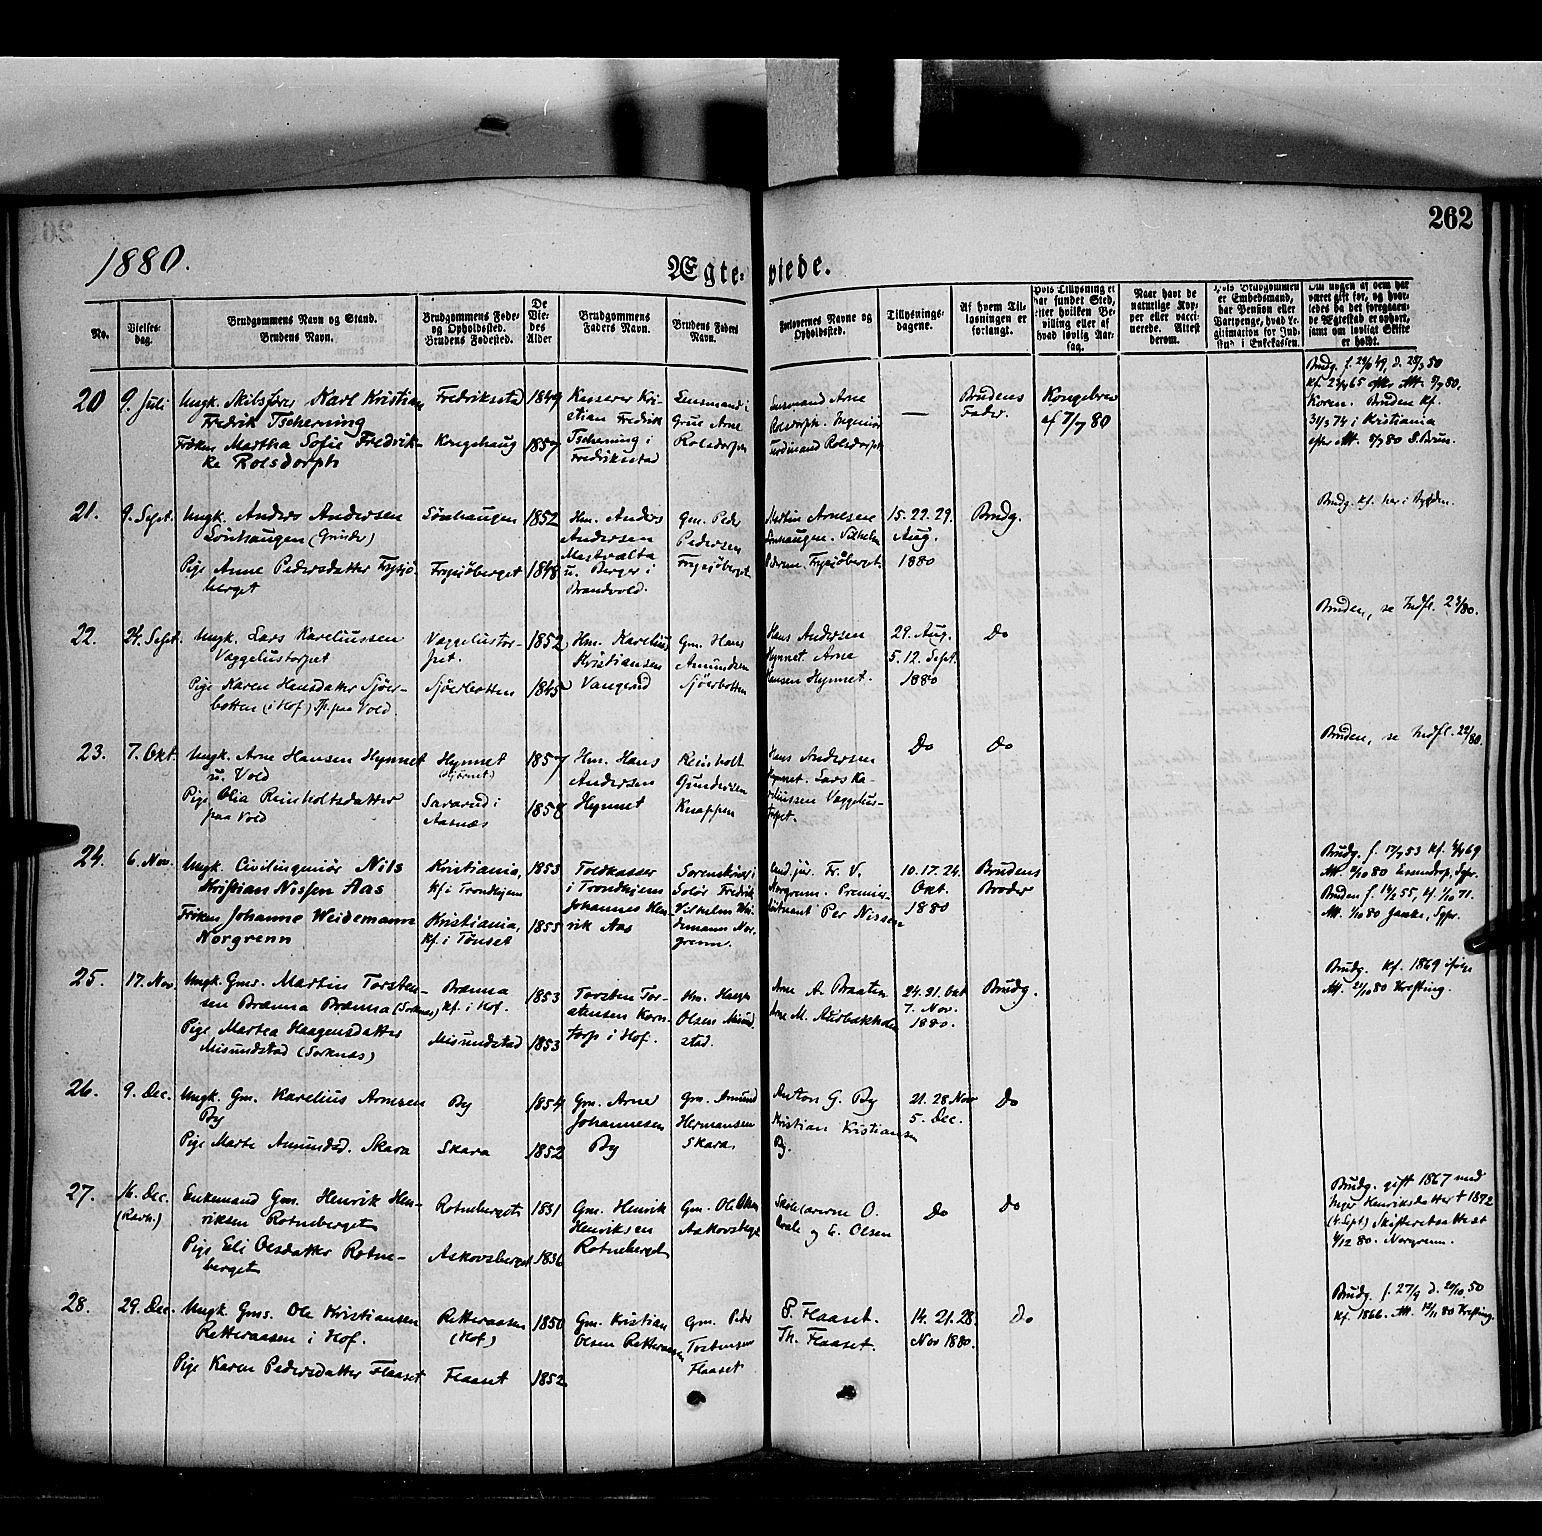 262
1880.
Ægteviede.
No.
Vielses-
dag.
Brudgommens Navn og Stand.
Brudens Navn.
Brudgommens Føde-
og Opholdssted.
Brudens Fødested.
De
Vie-
des
Alder
Brudgommens
Faders Navn.
Brudens Faders
Navn.
Forlovernes Navne og
Opholdssted.
Tillysnings-
dagene.
Af hvem Til-
lysningen er
forlangt.
Hvis Tillysning ei
har fundet Sted,
efter hvilken Be-
villing eller af
hvad lovlig Aar-
sag.
Naar havt de
naturlige Kop-
per eller vacci-
nerede. Attest
derom.
Hvis Brudgommen
er Embedsmand,
har Pension eller
Vartpenge, hvad Le-
gitimation for Ind-
skud i Enkekassen.
Om nogen af dem har
været gift før, og hvor-
ledes da det foregaaen-
de Ægteskab er ophørt,
samt om lovligt Skifte
er holdt.
20
9. Juli
Ungk. Skibsfører Karl Kristian
Fredrik Tscherning
Frøken Martha Sofie Fredrik-
ke Rolsdorph
Fredriksstad
Kongshaug
1849
1857
Kasserer Kri-
stian Fredrik
Tscherning i
Fredriksstad
Lensmand i
Grue Arne
Rolsdorph
Lensmand Arne
Rolsdorph. Ingeniør
Ferdinand Rolsdorph
—
Brudens
Fader.
Kongebrev
af 7/7 80
Brudg. f. d. 50
Kf. 65 efter Att. 80.
Koren. Bruden kf.
74 i Kristiania
efter Att. 80 S. Bruun.
21.
9. Sept.
Ungk. Anders Andersen
Sønhaugen (Grinder)
Pige Anne Pedersdatter Frysjø-
berget
Sønhaugen
Frysjøberget
1852
1848
Hm. Anders
Andersen
u. Berger i
Brandvold.
Gm. Peder
Pedersen
Frysjøberget
Mathias Arnesen
Sønhaugen. Vilhelm
Pedersen Frysjøberget
15. 22. 29.
Aug.
1880
Brudg.
Brudg. kf. her i Bygden.
22.
24. Sept.
Ungk. Lars Kareliussen
Vaggelustorpet
Pige Karen Hansdatter Sjøer-
botten (i Hof) Tj. paa Vold.
Vaggelustor-
pet.
Sjøerbotten
1852
1845
Hm. Karelius
Kristiansen
Vangerud
Gm. Hans
Amundsen
Sjøerbotten
Hans Andersen
Hynnet. Arne
Hansen Hynnet.
29. Aug.
5. 12. Sept.
1880
Do
Bruden, se Indfl. 23/80.
23.
7. Okt.
Ungk. Arne Hansen Hynnet
u. Vold
Pige Olia Reinholtsdatter
paa Vold
Hynnet
(Hjørnet)
Sararud i
Aasnæs
1857
1858
Hm. Hans
Andersen
Hynnet
Reinholt
Gundersen
Knappen
Hans Andersen
Hynnet. Lars Ka-
reliussen Vaggelus-
torpet.
Do
Do
Bruden, se Indfl. 22/80.
24.
6. Nov.
Ungk. Civilingeniør Nils
Kristian Nissen Aas
Frøken Johanne Weidemann
Norgrenn
Kristiania,
kf. i Trondhjem
Kristiania,
Kf. i Tønset
1853
1855
Toldkasser
i Trondhjem
Johannes Hen-
rik Aas
Sorenskriver i
Solør Fredrik
Vilhelm Wei-
demann Nor-
grenn.
Cand. jur. Fr. V.
Norgrenn. Premier-
løitnant Per Nissen
10. 17. 24.
Okt.
1880
Brudens
Broder
Brudg. f. 17/9 53 kf. 69
Att. 80 Sgpr.
Bruden f. 55, kf. 71.
Att. 80 Sgpr.
25.
17. Nov.
Ungk. Gmr. Martin Torsten-
sen Brænna Brænna (Sorknæs)
Pige Martea Haagensdatter
Misundstad (Sorknæs)
Brænna
kf. i Hof.
Misundstad
1853
1853
Torsten Tor-
stensen Korn-
torp i Hof.
Hm. Haagen
Olsen Misund-
stad.
Arne A. Braaten
Arne M. Audbakken
24. 31. Okt
7. Nov.
1880.
Brudg.
Brudg. kf. 1869 ifølge
Att. 80 Krefting.
26.
9. Dec.
Ungk. Gm. Karelius Arnesen
By
Pige Marte Amundsd. Skara
By
Skara
1854
1852
Gm. Arne
Johannesen
By
Gm. Amund
Hermansen
Skara.
Anton G. By
Kristian Kristiansen
By.
21. 28 Nov
5. Dec.
Do
27.
16. Dec.
Enkemand Gm. Henrik Hen-
riksen Rotneberget
Pige Eli Olsdatter Rotne-
berget
Rotneberget
Aaskovsberget
1831
1836
Gm. Henrik
Henriksen
Rotneberget
Gm. Ole Olsen
Aaskovsberget
O.
og E. Olsen
Do
Do
Brudg. gift 1867 med
Inger Henriksdatter † 1872
(4 Sept) Skifteretsattest
4/12 80. Norgrenn.
28.
29. Dec.
Ungk. Gms. Ole Kristiansen
Retteraasen i Hof.
Pige Karen Pedersdatter Flaaset
Retteraasen
(Hof)
Flaaset
1850
1852
Gm. Kristian
Olsen Retteraasen
Gm. Peder
Torstensen
Flaaset
P. Flaaset.
Th. Flaaset.
14. 21. 28.
Nov 1880.
Do
Brudg. f. 27/9 d. 20/10 50
kf. 1866. Att. 80 Krefting.